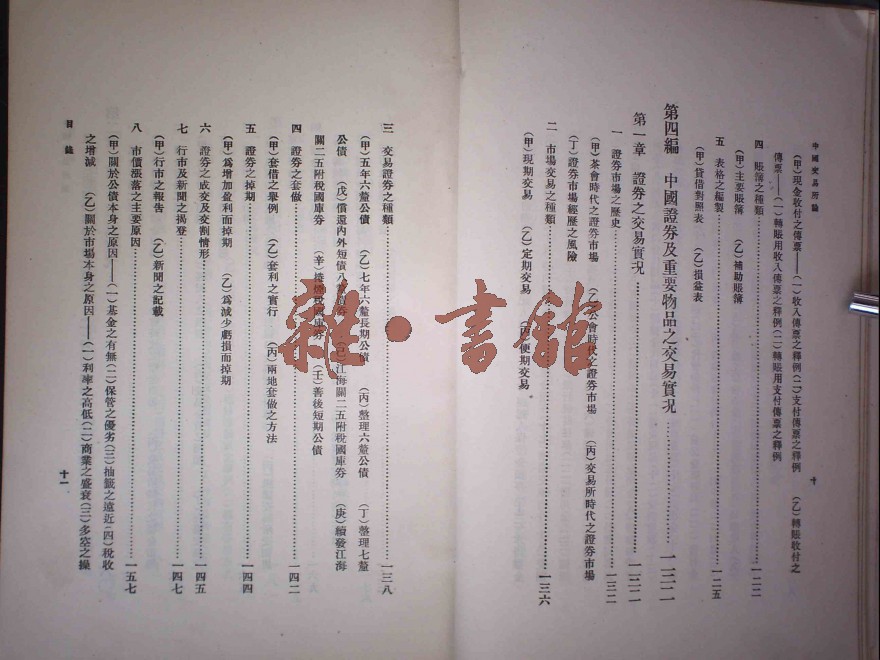 中國交易所論
十
(甲)現金收付之傳票——(一)收入傳票之釋例(二)支付傳票之釋例 (乙)轉賬收付之
傳票——(一)轉賬用收入傳票之釋例(二)轉賬用支付傳票之釋例
四 賬簿之種類…………一二二
(甲)主要賬簿 (乙)補助賬簿
五 表格之編製…………一二五
(甲)貸借對照表 (乙)損益表
第四編 中國證券及重要物品之交易實況…………一三二
第一章 證券之交易實況…………一三二
一 證券市場之歷史…………一三二
(甲)茶會時代之證券市場 (乙)公會時代之證券市場 (丙)交易所時代之證券市場
(丁)證券市場經歷之風險
二 市場交易之種類…………一三六
(甲)現期交易 (乙)定期交易 (丙)便期交易
三 交易證券之種類…………一三八
(甲)五年六釐公債 (乙)七年六釐長期公債 (丙)整理六釐公債 (丁)整理七釐
公債 (戊)償還內外短債八釐債券 (己)江海關二五附稅國庫券 (庚)續發江海
關二五附稅國庫券 (辛)捲煙稅國庫券 (壬)善後短期公債
四 證券之套做…………一四二
(甲)套借之舉例 (乙)套利之實行 (丙)兩地套做之方法
五 證券之掉期…………一四四
(甲)爲增加盈利而掉期 (乙)爲減少虧損而掉期
六 證券之成交及交割情形…………一四五
七 行市及新聞之揭登…………一四七
(甲)行市之報告 (乙)新聞之記載
八 市價漲落之主要原因…………一五七
(甲)關於公債本身之原因——(一)基金之有無(二)保管之優劣(三)抽籤之遠近(四)稅收
之增減 (乙)關於市場本身之原因——(一)利率之高低(二)商業之盛衰(三)多空之操
目錄
十一
雜·書館